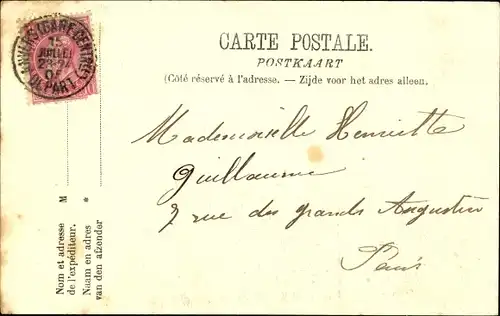 CARTE POSTALE.
POSTKAART
(Côté réservé à l'adresse. — Zijde voor het adres alleen.
ANVERS (GARE CENTRE)
15
JUILLET
DEPART
Mademoiselle Henriette
Guillaume
7 rue des grands Augustin
Paris
M
Nom et adresse
de l'expéditeur.
*
Naam en adres
van den afzender